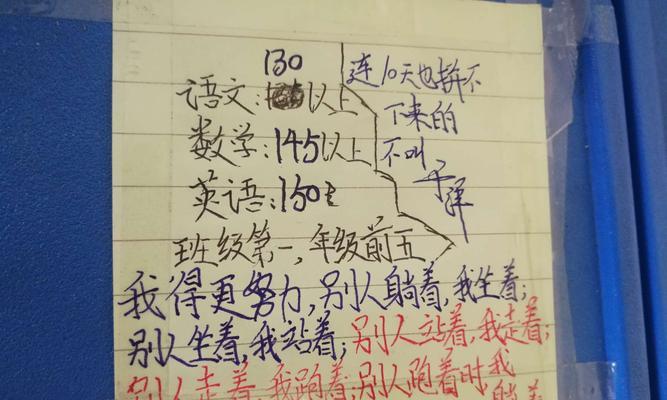 130
语文:以上
数学:145以上
英语:150
班级第一,年级前五
连10天也拚不
下来的
不叫
于洋
我得更努力,别人躺着,我坐着;
别人坐着,我站着;别人站着,我走着;
别人走着,我跑着;别人跑着时我
躺着